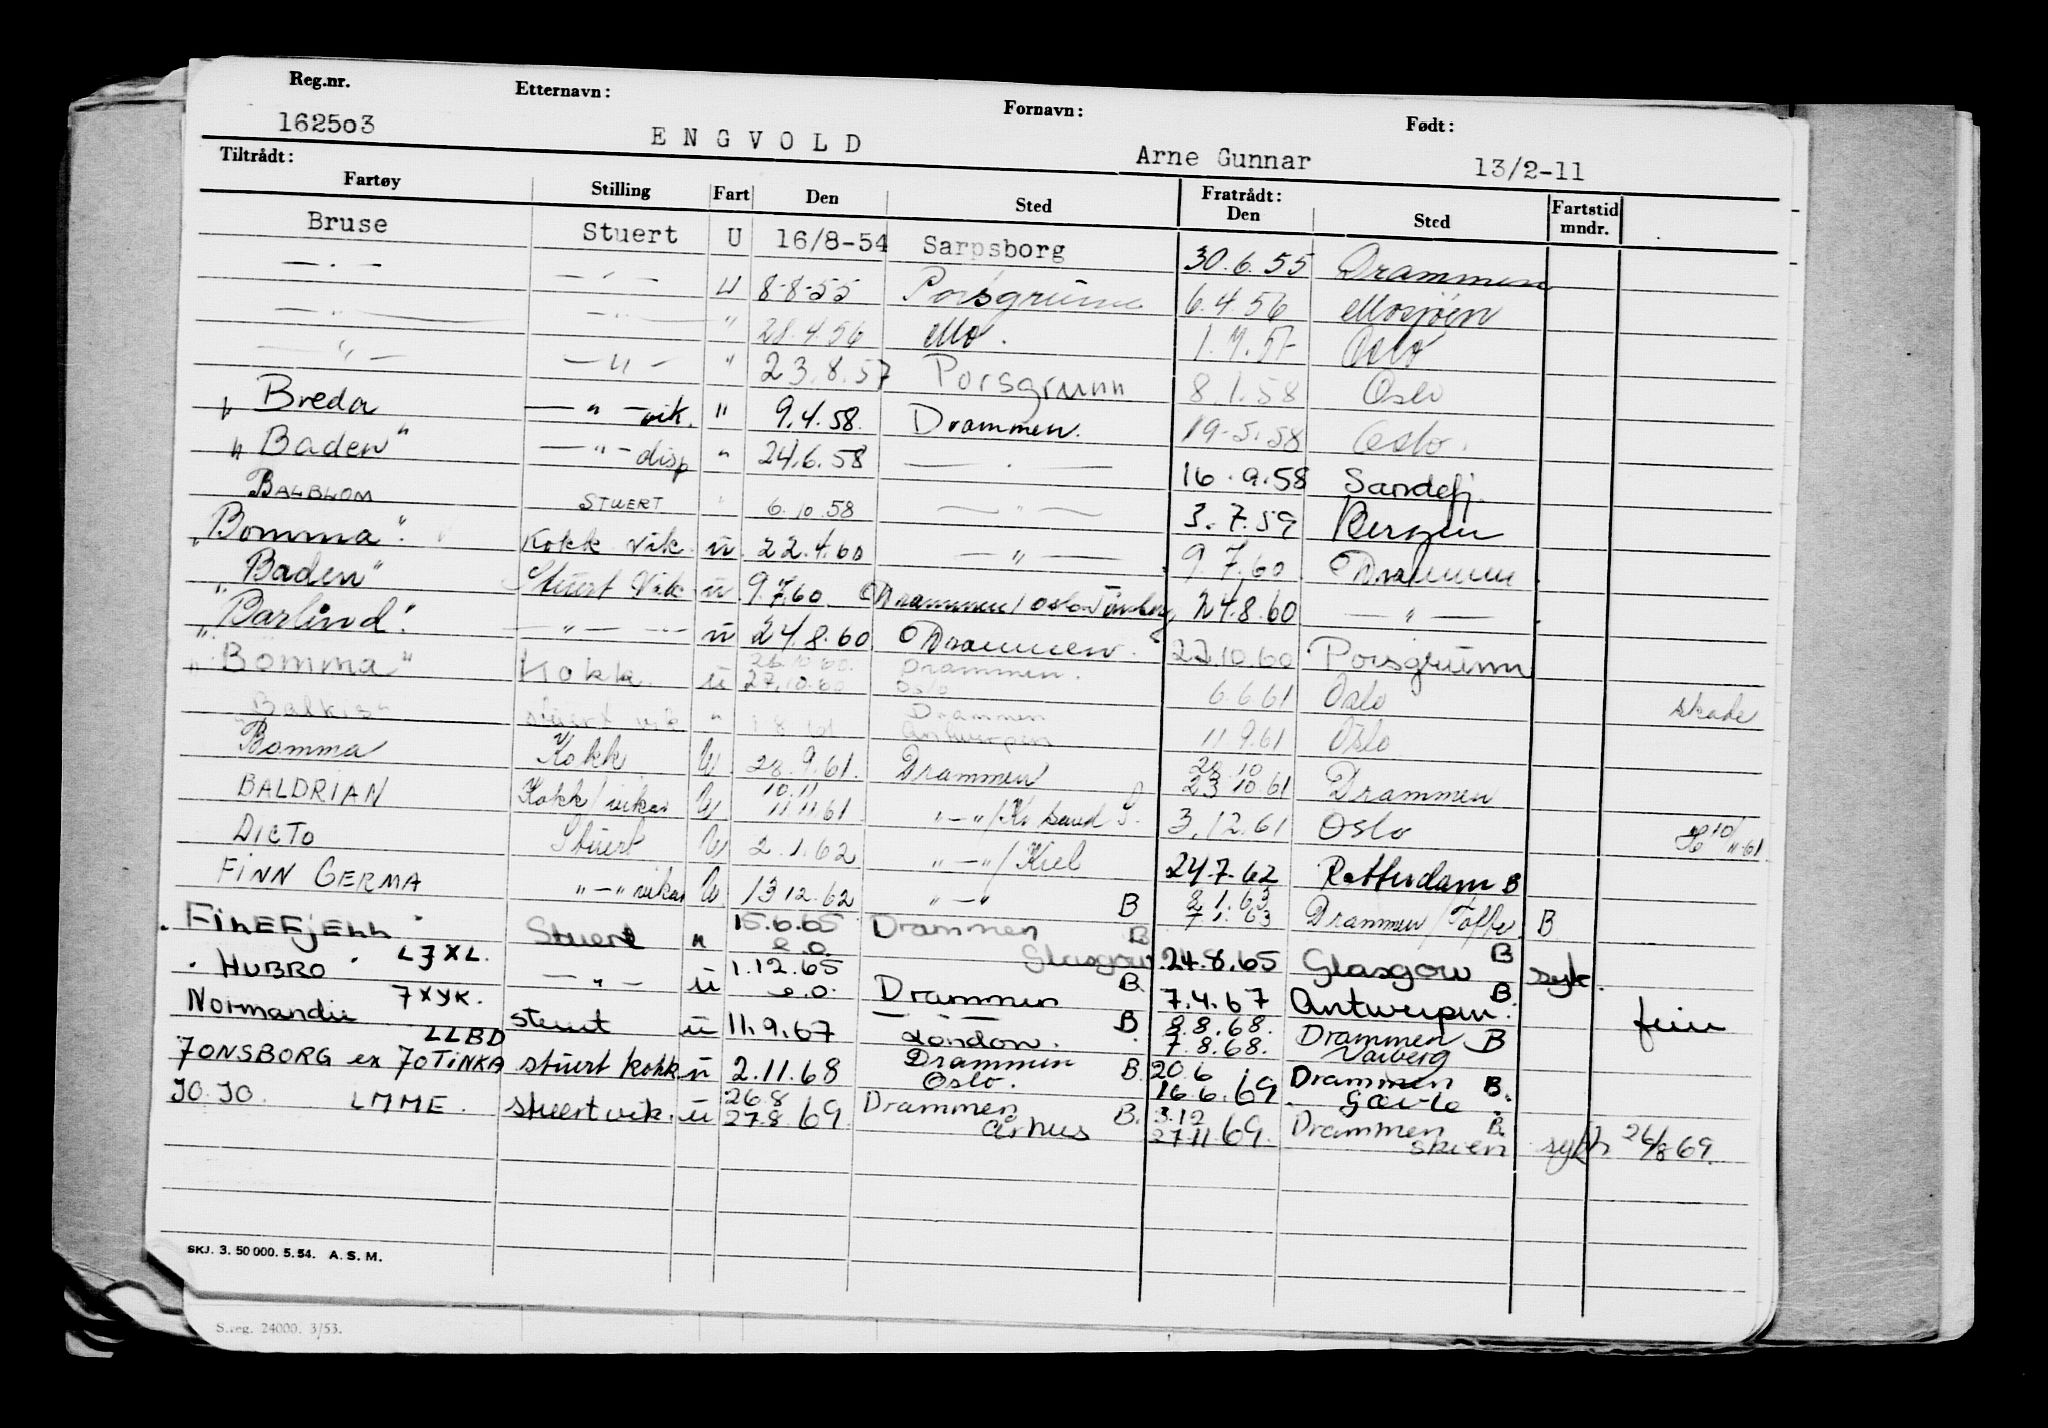 Reg.nr. Etternavn: Fornavn: Født:
162503 ENGVOLD Arne Gunnar 13/2-11
Tiltrådt: Fratrådt:
Fartøy Stilling Fart Den Sted Den Sted Fartstid mndr.
Bruse Stuert U 16/8-54 Sarpsborg 30.6.55 Drammen
— . — — . — U 8-8-55 Porsgrunn 6.4.56 Mosjøen
— " — — " — " 28.4.56 Mo. 1.7.57 Oslo
— " — — " — " 23.8.57 Porsgrunn 8.1.58 Oslo
" Breda — " — vik. " 9.4.58. Drammen. 19-5.58 Oslo.
" Baden" — " — disp " 24.6.58 — . — 16.9.58 Sandefj.
BALBLOM STUERT " 6.10.58 — " — 3.7.59 Bergen
"Bomma". Kokk vik. ü. 22.4.60 — " — 9.7.60 Drammen.
"Baden" Stuert Vik ü. 9.7.60 Drammen/Oslo Tønsberg, 24.8.60 — " —
"Barlind". — " — ü 24.8.60 Drammen. 22.10.60 Porsgrunn
"Bomma" Kokk. ü 27.10.60 Drammen. Oslo 6.6.61 Oslo skade
"Balkis" stuert vik " 1.8.61 Drammen Antwerpen 11.9.61 Oslo
Bomma Kokk U 28.9.61. Drammen 28.10 23.10.61 Drammen
BALDRIAN Kokk/vikar U 10.11 11.11.61 "—"/Kr sand S. 3.12.61 Oslo 10/11-61
DICTO Stuert U 2.1.62 "—"/Kiel 24.7.62 Rotterdam B
FINN GERMA "—" vikar U. 13.12.62 "—" B 8.1.63 7.1.63 Drammen/Tofte B
FINEFJELL LJXL. Stuert " 15.6.65 e.o. Drammen B Glasgow 24.8.65 Glasgow B syk.
"HUBRO" JXYK. — " — ü 1.12.65 e.o. Drammen B. 7.4.67 Antwerpen. B. ferie
Normandie LLBD stuert ü 11.9.67 Drammen B London. 8.8.68. 7.8.68. Drammen B Varberg
JONSBORG ex JOTINKA stuert kokk ü 2.11.68 Drammen B. Oslo. 20.6 16.6.69 Drammen B. Gävle
JO. JO. LMME. stuert vik. ü 26.8 27.8.69 Drammen B. Århus 3.12 27.11.69. Drammen B. Skien sykh 26/8 69.
SKJ. 3. 50 000. 5.54. A. S. M.
S.reg. 24000. 3/53.